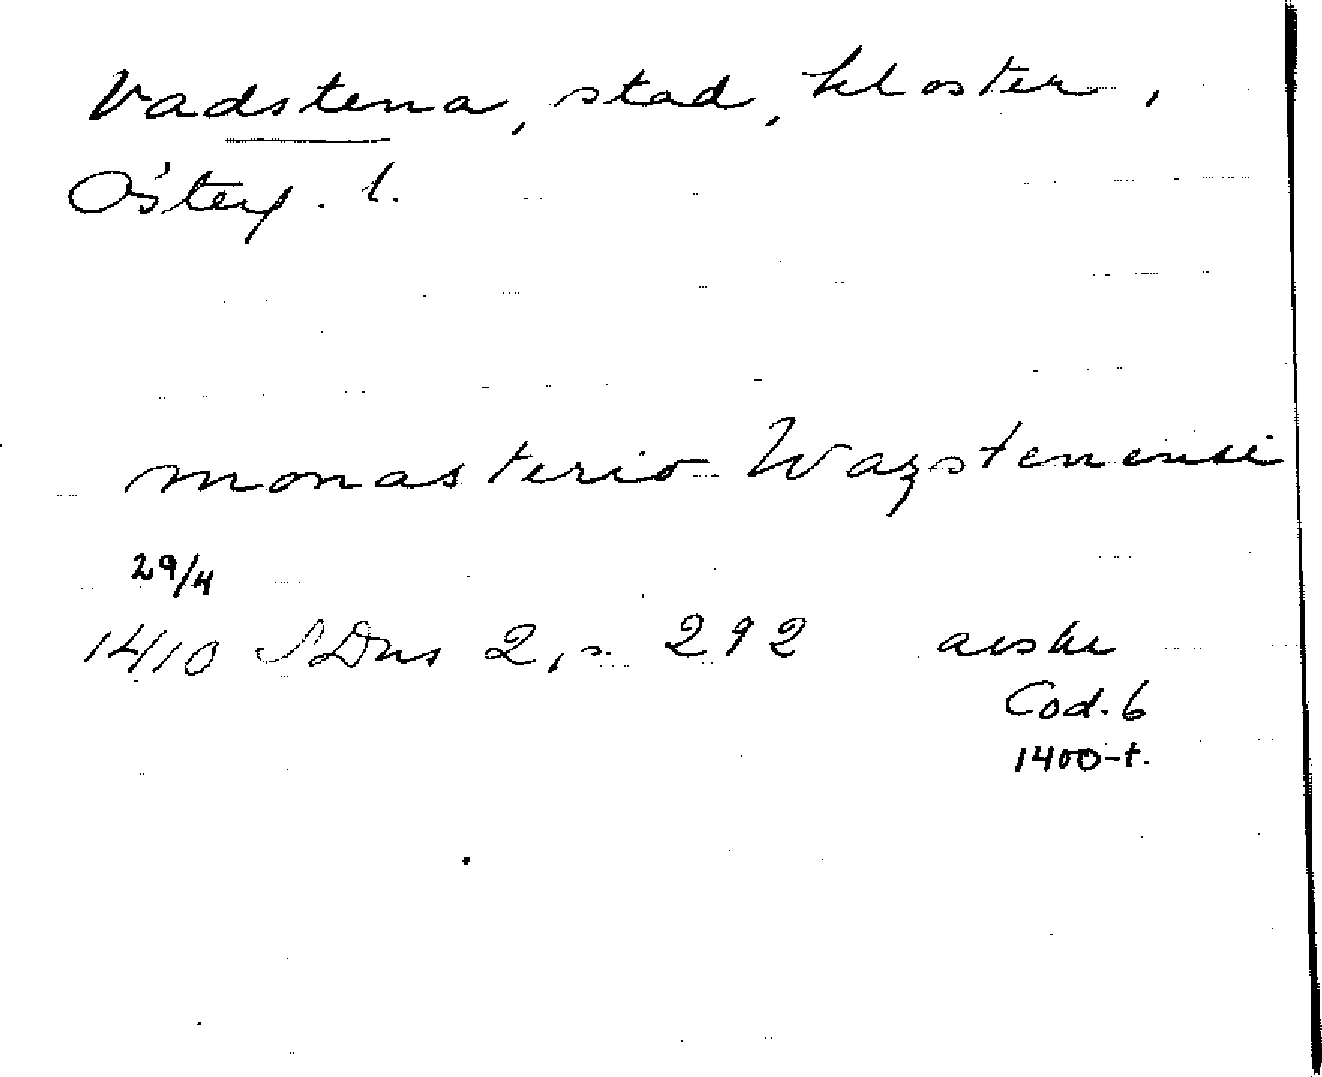 Vadstena, stad, kloster,
Österg. l.
monasterio Wazstenensi
29/4
1410 SDns 2, s. 292 avskr
Cod. 6
1400-t.